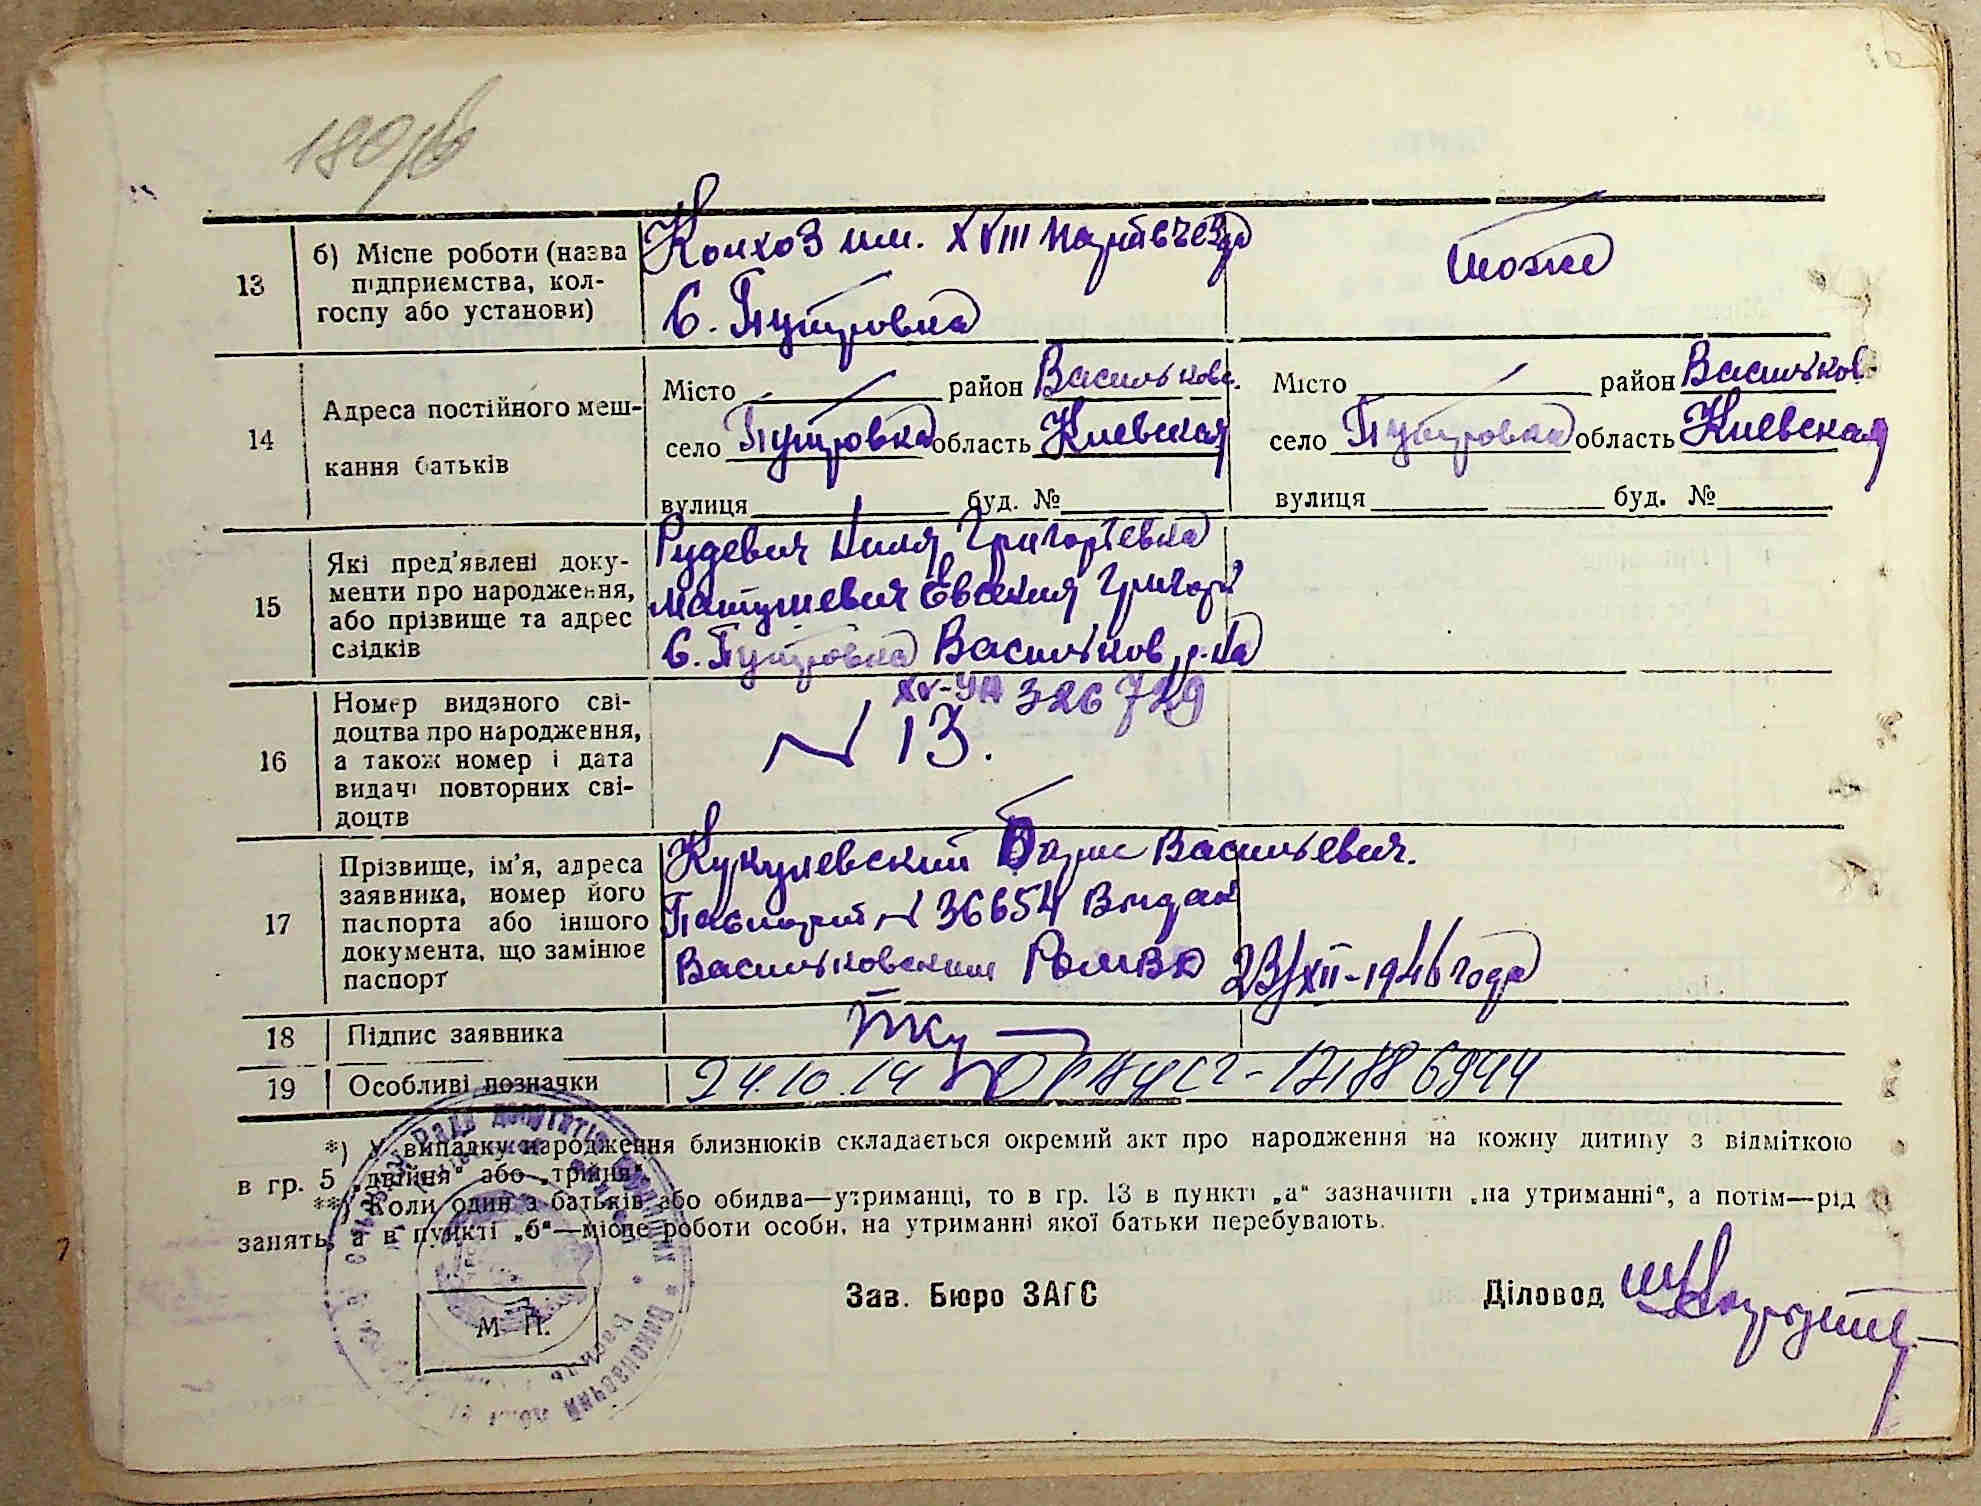 180
13
б) Місце роботи (назва
підприємства, кол-
госпу або установи)
Колхоз им. XVIII партсъезда
С. Путровка
тоже
14
Адреса постійного меш-
кання батьків
Місто район Васильковс.
село Путровка область Киевская
вулиця буд. №
Місто район Васильков
село Путровка область Киевская
вулиця буд. №
15
Які пред'явлені доку-
менти про народження,
або прізвище та адрес
свідків
Рудевич Григорьевна
Матушевич Евгения Григорь
С. Путровка Васильков р-на
16
Номер виданого сві-
доцтва про народження,
а також номер і дата
видачі повторних сві-
доцтв
XV-УН 326729
N 13.
17
Прізвище, ім'я, адреса
заявника, номер його
паспорта або іншого
документа, що замінює
паспорт
Кукулевский Борис Васильевич.
Паспорт N 36654 Выдан
Васильковским РОМВД 23/XII-1946 года
18
Підпис заявника
19
Особливі позначки
24.10.14
*) У випадку народження близнюків складається окремий акт про народження на кожну дитину з відміткою
в гр. 5 „двійня“ або „трійня“.
**) Коли один з батьків або обидва—утриманці, то в гр. 13 в пункті „а“ зазначити „на утриманні“, а потім—рід
занять, а в пункті „б“—місце роботи особи, на утриманні якої батьки перебувають.
Зав. Бюро ЗАГС
Діловод
М. П.